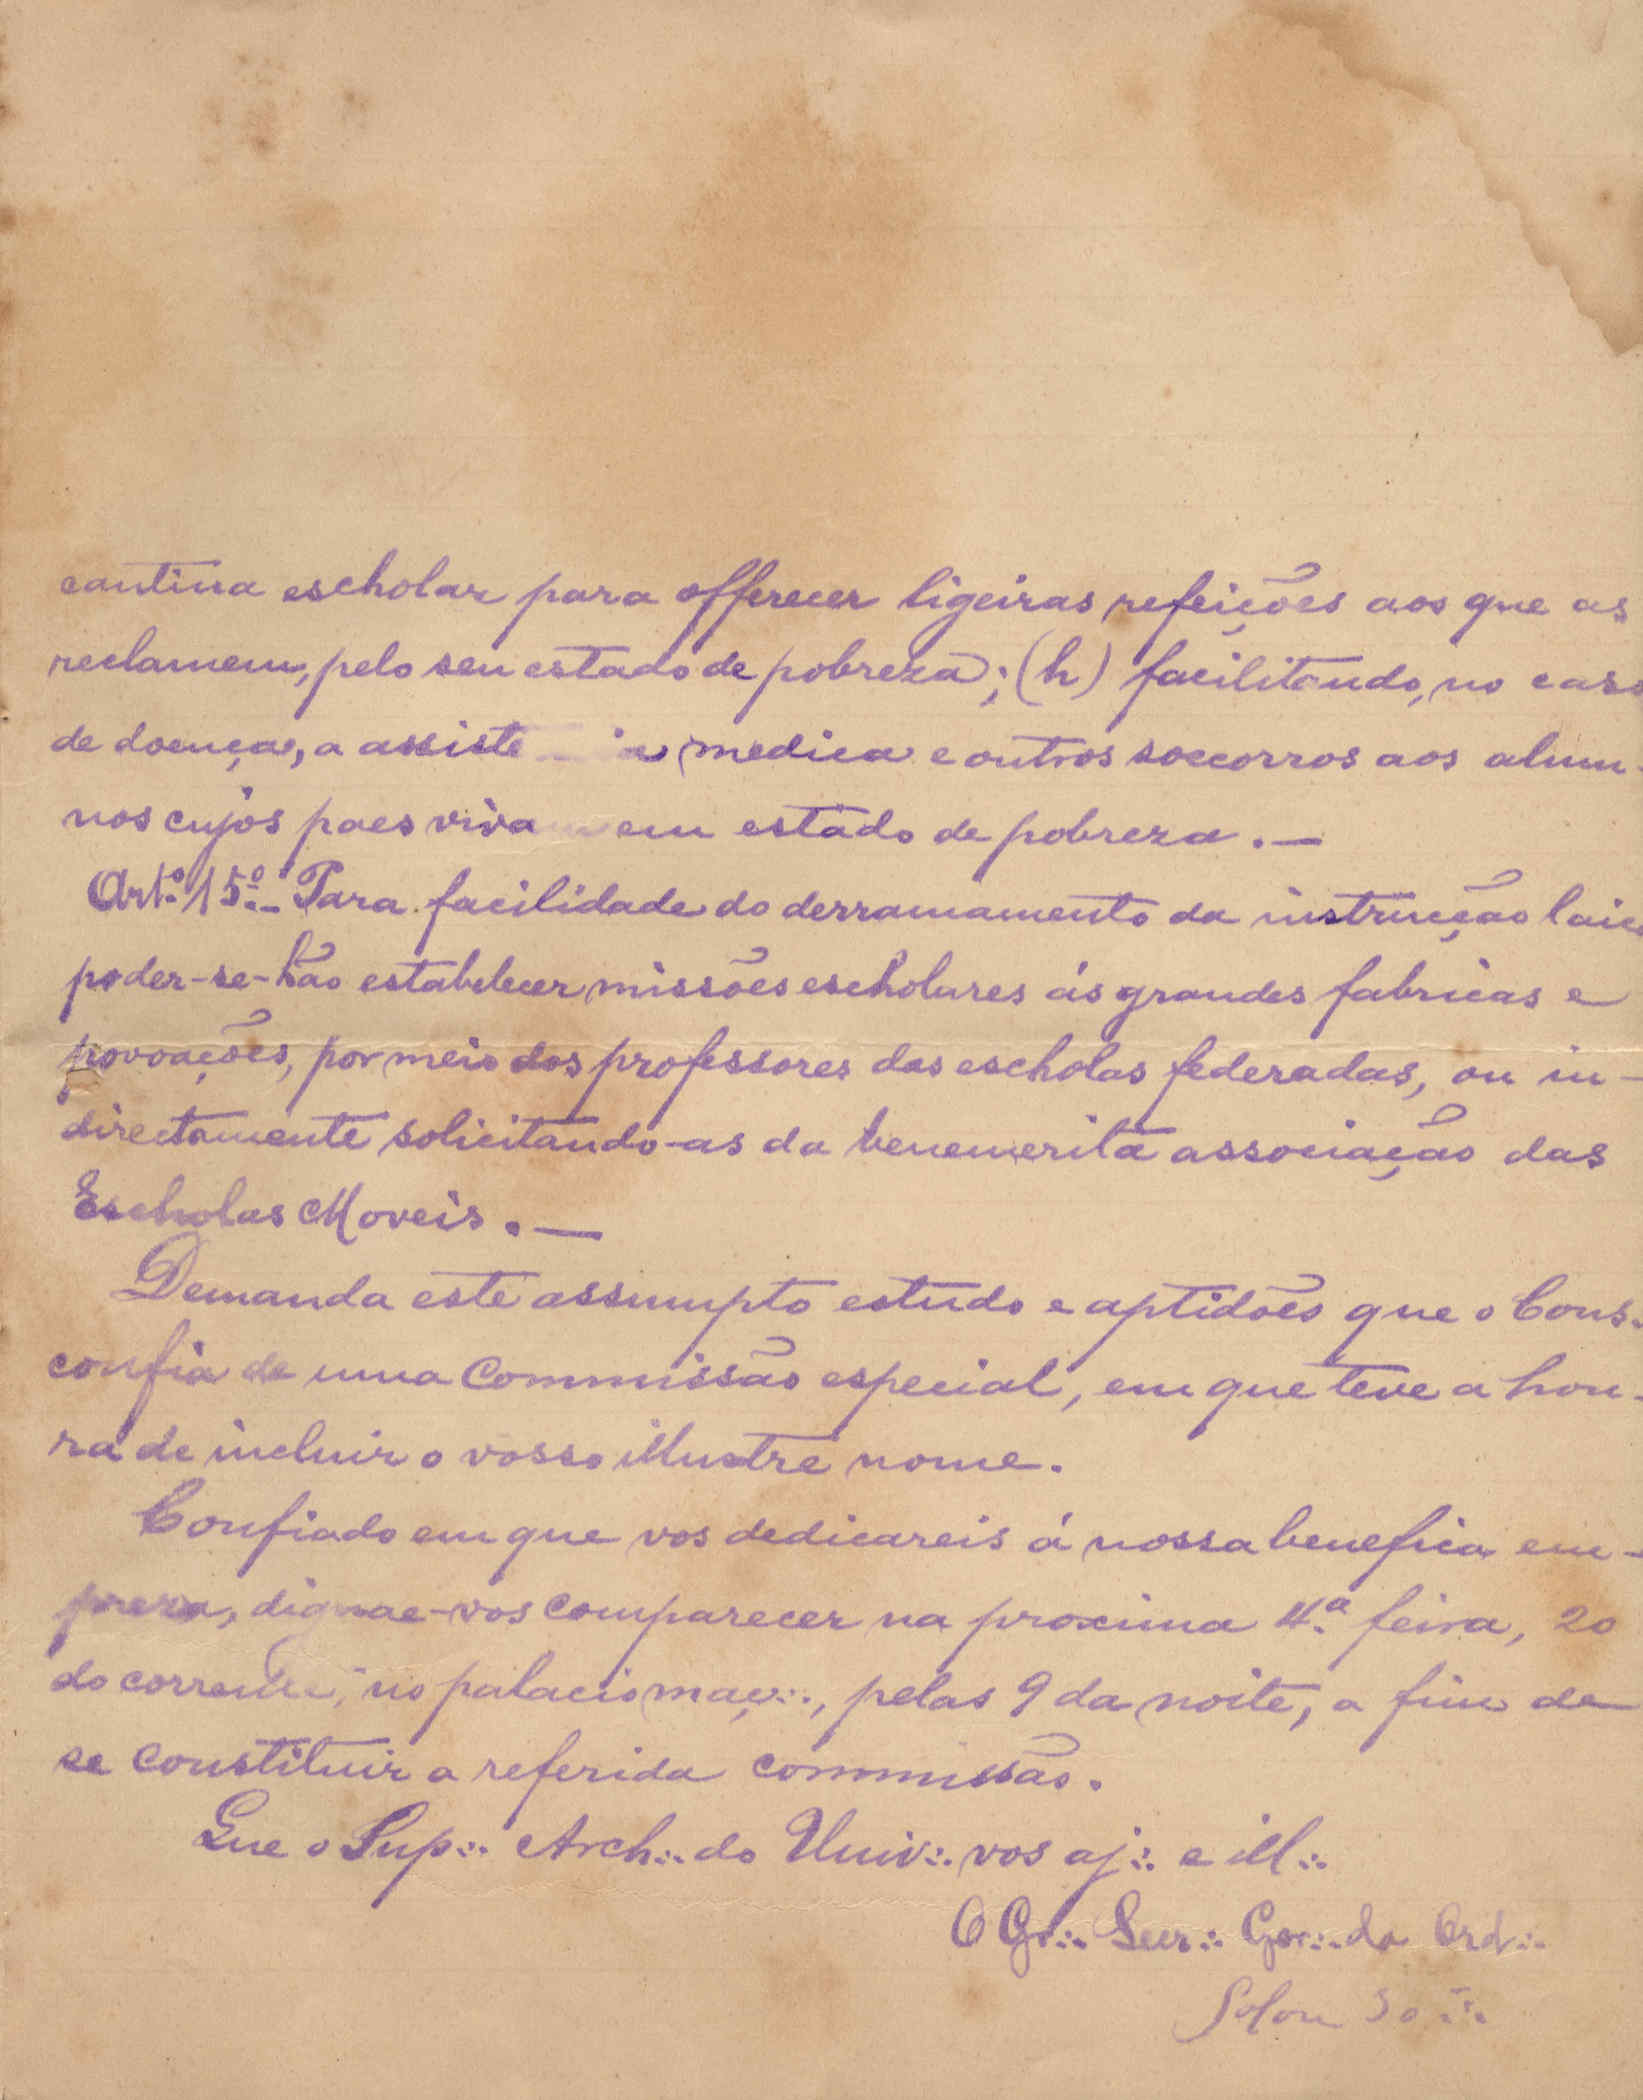 cantina escholar para offerecer ligeiras refeições aos que as
reclamem, pelo seu estado de pobreza; (h) facilitando, no caso
de doença, a assiste ia medica e outros soccorros aos alum-
nos cujos paes vivam em estado de pobreza. —
Art.º 15º.- Para facilidade do derramamento da instrucção laica
poder-se-hão estabelecer missões escholares ás grandes fabricas e
povoações, por meio dos professores das escholas federadas, ou in-
directamente solicitando-as da benemerita associação das
Escholas Moveis. —
Demanda este assumpto estudo e aptidões que o Cons.
confia de uma Commissão especial, em que teve a hon-
ra de incluir o vosso illustre nome.
Confiado em que vos dedicareis á nossa benefica em-
preza, dignae-vos comparecer na proxima 4.ª feira, 20
do corrente, no palacio maç∴, pelas 9 da noite, a fim de
se constituir a referida commissão.
Que o Sup∴ Arch∴ do Univ∴ vos aj∴ e ill∴
O Gr∴ Secr∴ Ger∴ da Ord∴
Solon